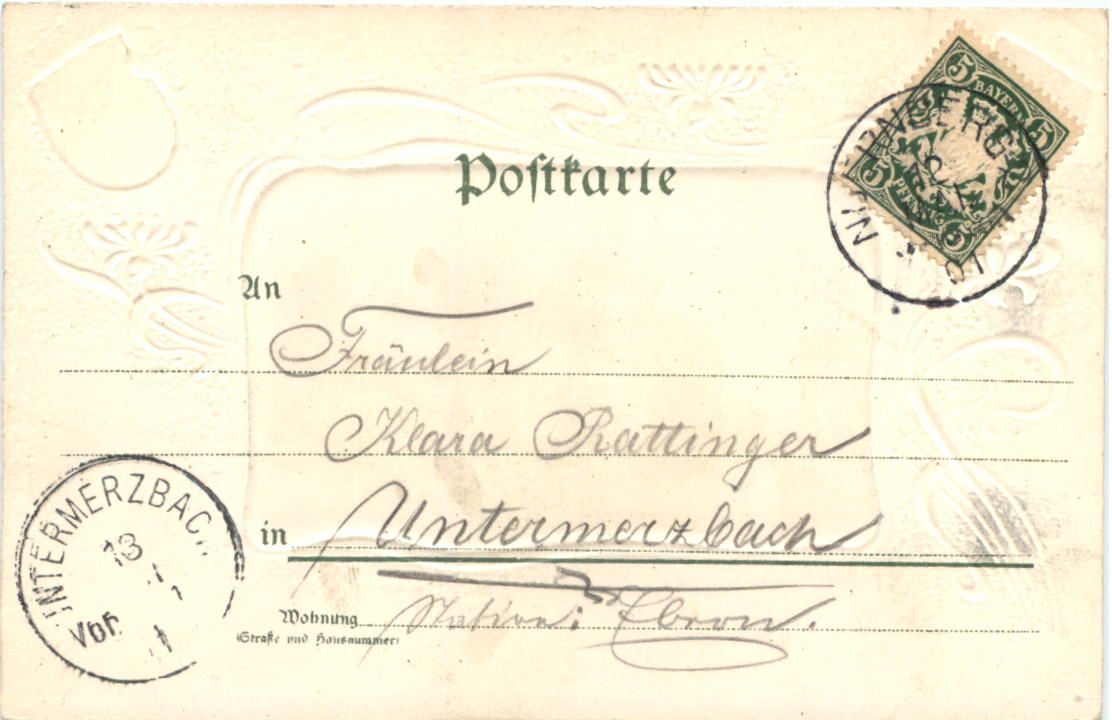 Postkarte
5 BAYERN 5
5 PFENNIG 5
NUERNBERG
01
An
Fräulein
Klara Rattinger
in Untermerzbach
Wohnung Station: Ebern.
(Straße und Hausnummer)
UNTERMERZBACH
13
Vor